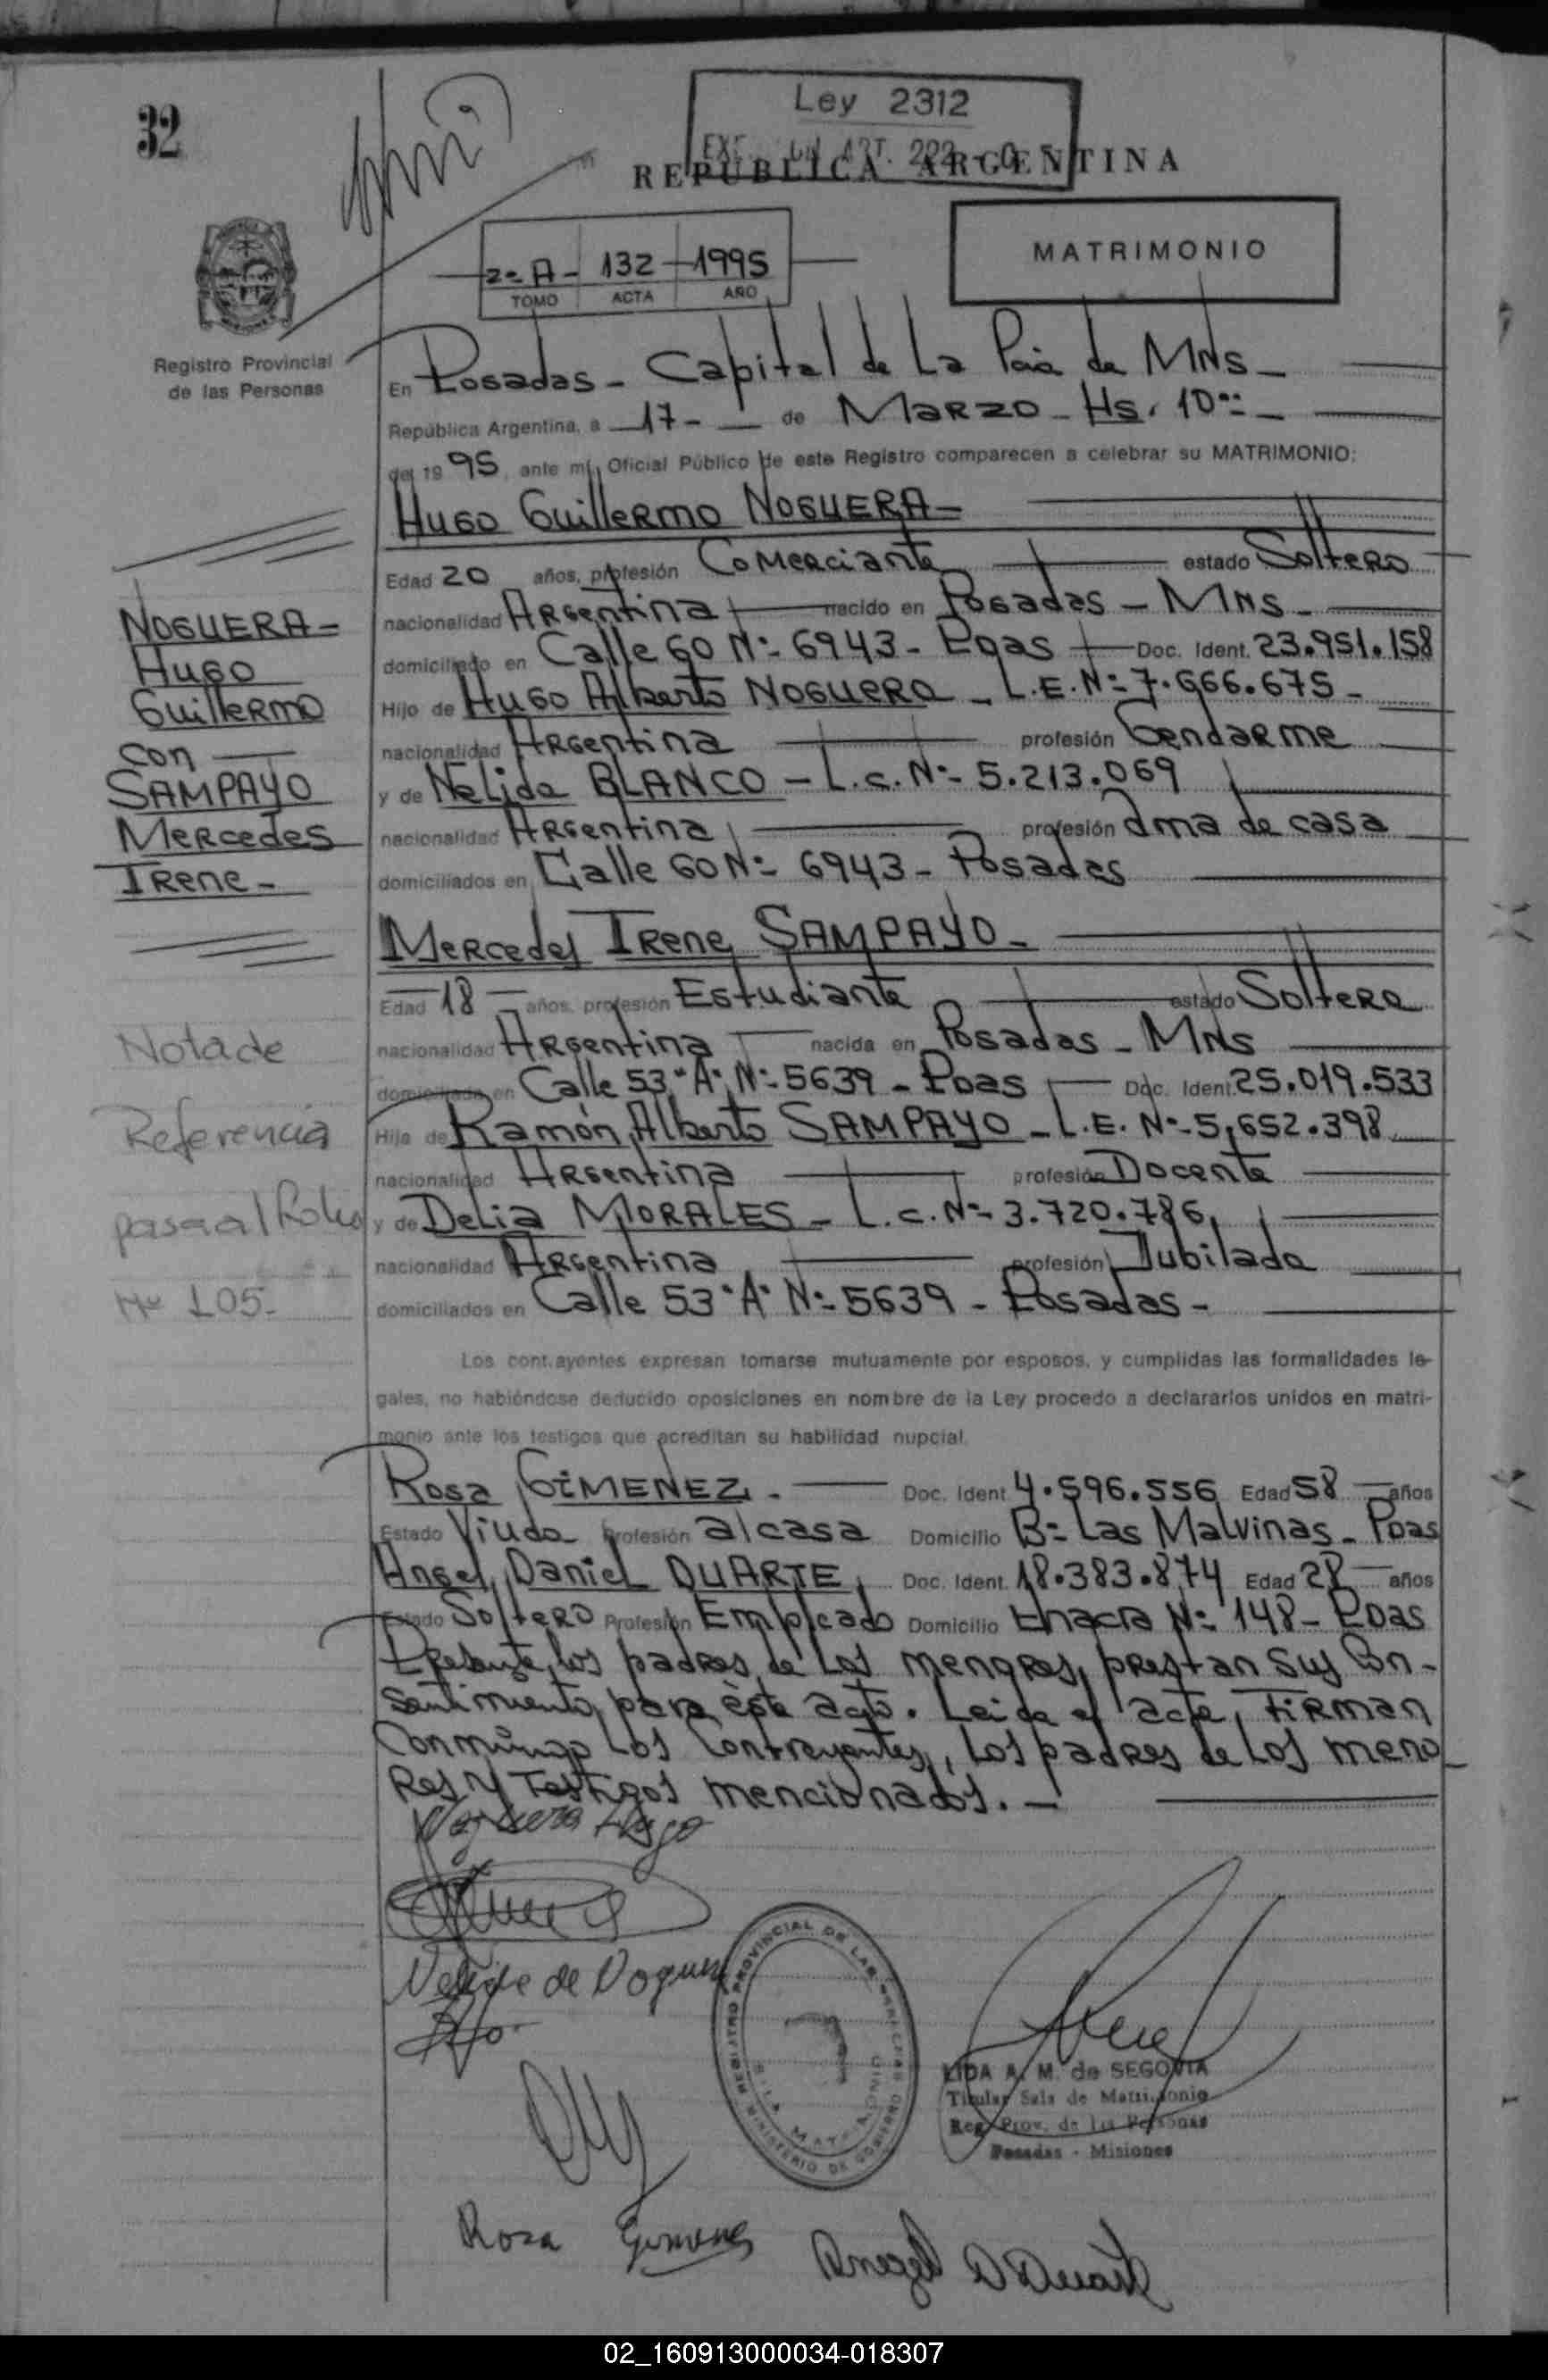 32
Ley 2312
REPUBLICA ARGENTINA
2º A - 132 - 1995
TOMO ACTA AÑO
MATRIMONIO
Registro Provincial
de las Personas
En Posadas - Capital de La Pcia de MNS -
República Argentina, a 17 - de MARZO - Hs. 10
del 1995, ante mí, Oficial Público de este Registro comparecen a celebrar su MATRIMONIO:
Hugo Guillermo NOGUERA -
Edad 20 años, profesión Comerciante estado Soltero
nacionalidad Argentina nacido en Posadas - MNS -
domiciliado en Calle 60 Nº 6943 - Pdas Doc. Ident. 23.951.158
Hijo de Hugo Alberto NOGUERA - L.E. Nº 7.666.675 -
nacionalidad Argentina profesión Gendarme
y de Nelida BLANCO - L.C. Nº 5.213.069
nacionalidad Argentina profesión ama de casa
domiciliados en Calle 60 Nº 6943 - Posadas
NOGUERA -
Hugo
Guillermo
con
SAMPAYO
Mercedes
Irene -
Mercedes Irene SAMPAYO -
Edad 18 años, profesión Estudiante estado Soltera
nacionalidad Argentina nacida en Posadas - MNS
domiciliada en Calle 53 "A" Nº 5639 - Pdas Doc. Ident. 25.019.533
Hija de Ramón Alberto SAMPAYO - L.E. Nº 5.652.398
nacionalidad Argentina profesión Docente
y de Delia MORALES - L.C. Nº 3.720.786
nacionalidad Argentina profesión Jubilada
domiciliados en Calle 53 "A" Nº 5639 - Posadas -
Nota de
Referencia
pasa al folio
Nº 105 -
Los contrayentes expresan tomarse mutuamente por esposos, y cumplidas las formalidades le-
gales, no habiéndose deducido oposiciones en nombre de la Ley procedo a declararlos unidos en matri-
monio ante los testigos que acreditan su habilidad nupcial.
Rosa GIMENEZ - Doc. Ident. 4.596.556 Edad 58 años
Estado Viuda Profesión a/casa Domicilio Bº Las Malvinas - Pdas
Angel Daniel DUARTE, Doc. Ident. 18.383.874 Edad 28 años
Estado Soltero Profesión Empleado Domicilio Chacra Nº 148 - Pdas
Presente los padres de los menores, prestan sus Con-
sentimiento para éste acto. Leida el acta, Firman
Conmigo los Contrayentes, los padres de los meno
Res y Testigos mencionados. -
Noguera Hugo
Nelida de Noguera
REGISTRO PROVINCIAL DE LAS PERSONAS
MINISTERIO DE GOBIERNO
SALA MATRIMONIO
LIDA A. M. de SEGOVIA
Titular Sala de Matrimonio
Reg. Prov. de las Personas
Posadas - Misiones
Rosa Gimenez
Angel D Duarte
02_160913000034-018307